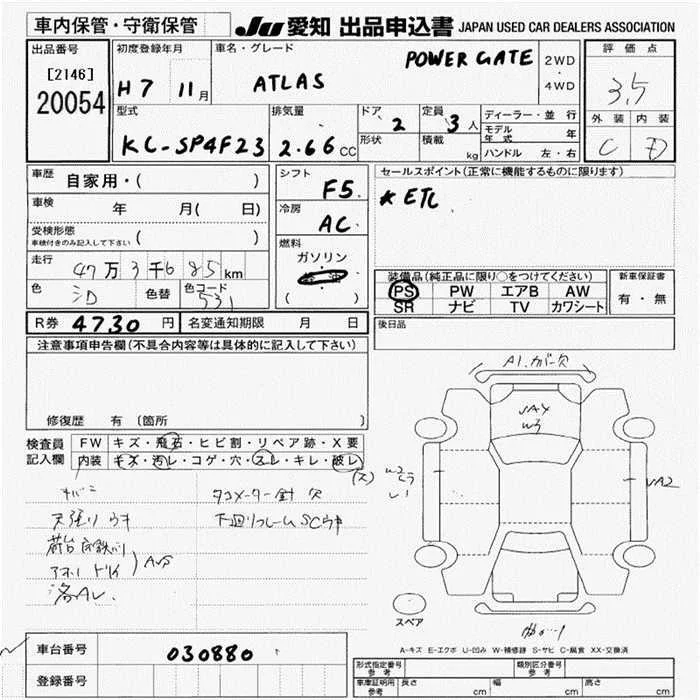 車内保管・守衛保管 JU 愛知 出品申込書 JAPAN USED CAR DEALERS ASSOCIATION
出品番号 [2146] 20054
初度登録年月 H7 11月
車名・グレード ATLAS POWER GATE
2WD・4WD
評価点 3.5
外装 C 内装 D
型式 KC-SP4F23
排気量 2.66 cc
ドア 2 定員 3人
形状 積載 kg
ディーラー・並行
モデル年式 年
ハンドル 左・右
車歴 自家用・( )
車検 年 月( 日)
受検形態 車検付きのみ記入して下さい ( )
走行 47万3千685km
色 色替 色コード 531
シフト F5
冷房 AC
燃料 ガソリン
( )
セールスポイント(正常に機能するものに限ります)
* ETC
装備品(純正品に限り○をつけてください)
PS PW エアB AW
SR ナビ TV カワシート
新車保証書 有・無
R券 4730円 名変通知期限 月 日
後日品
注意事項申告欄(不具合内容等は具体的に記入して下さい)
修復歴 有 (箇所 )
検査員記入欄
FW キズ・飛石・ヒビ割・リペア跡・X要
内装 キズ・汚レ・コゲ・穴・スレ・キレ・破レ
天張り
タコメーター針 欠
A1. カバー欠
W3
スペア
A-キズ E-エクボ U-凹み W-補修跡 S-サビ C-腐食 XX-交換済
車台番号 030880
登録番号
形式指定番号 参考 類別区分番号 参考
車庫証明用 参考 長さ cm 幅 cm 高さ cm